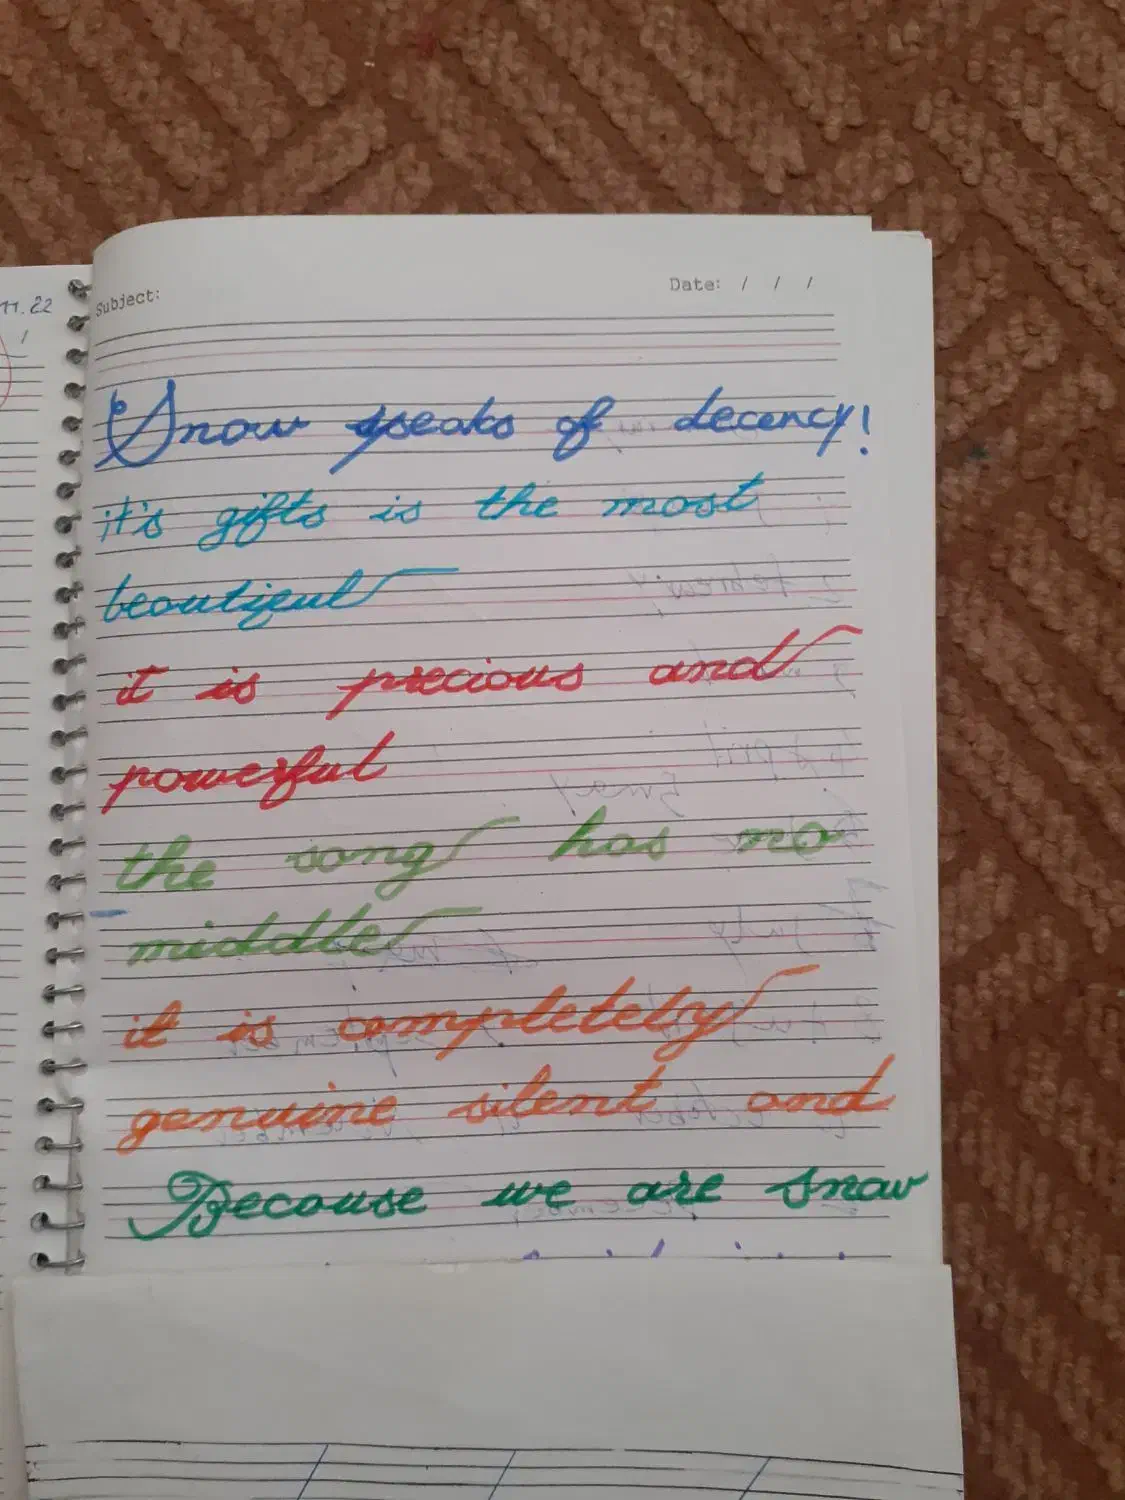 11.22
Subject:
Date: / / /
Snow speaks of decency!
it's gifts is the most
beautiful
it is precious and
powerful
the song has no
middle
it is completely
genuine silent and
Because we are snow